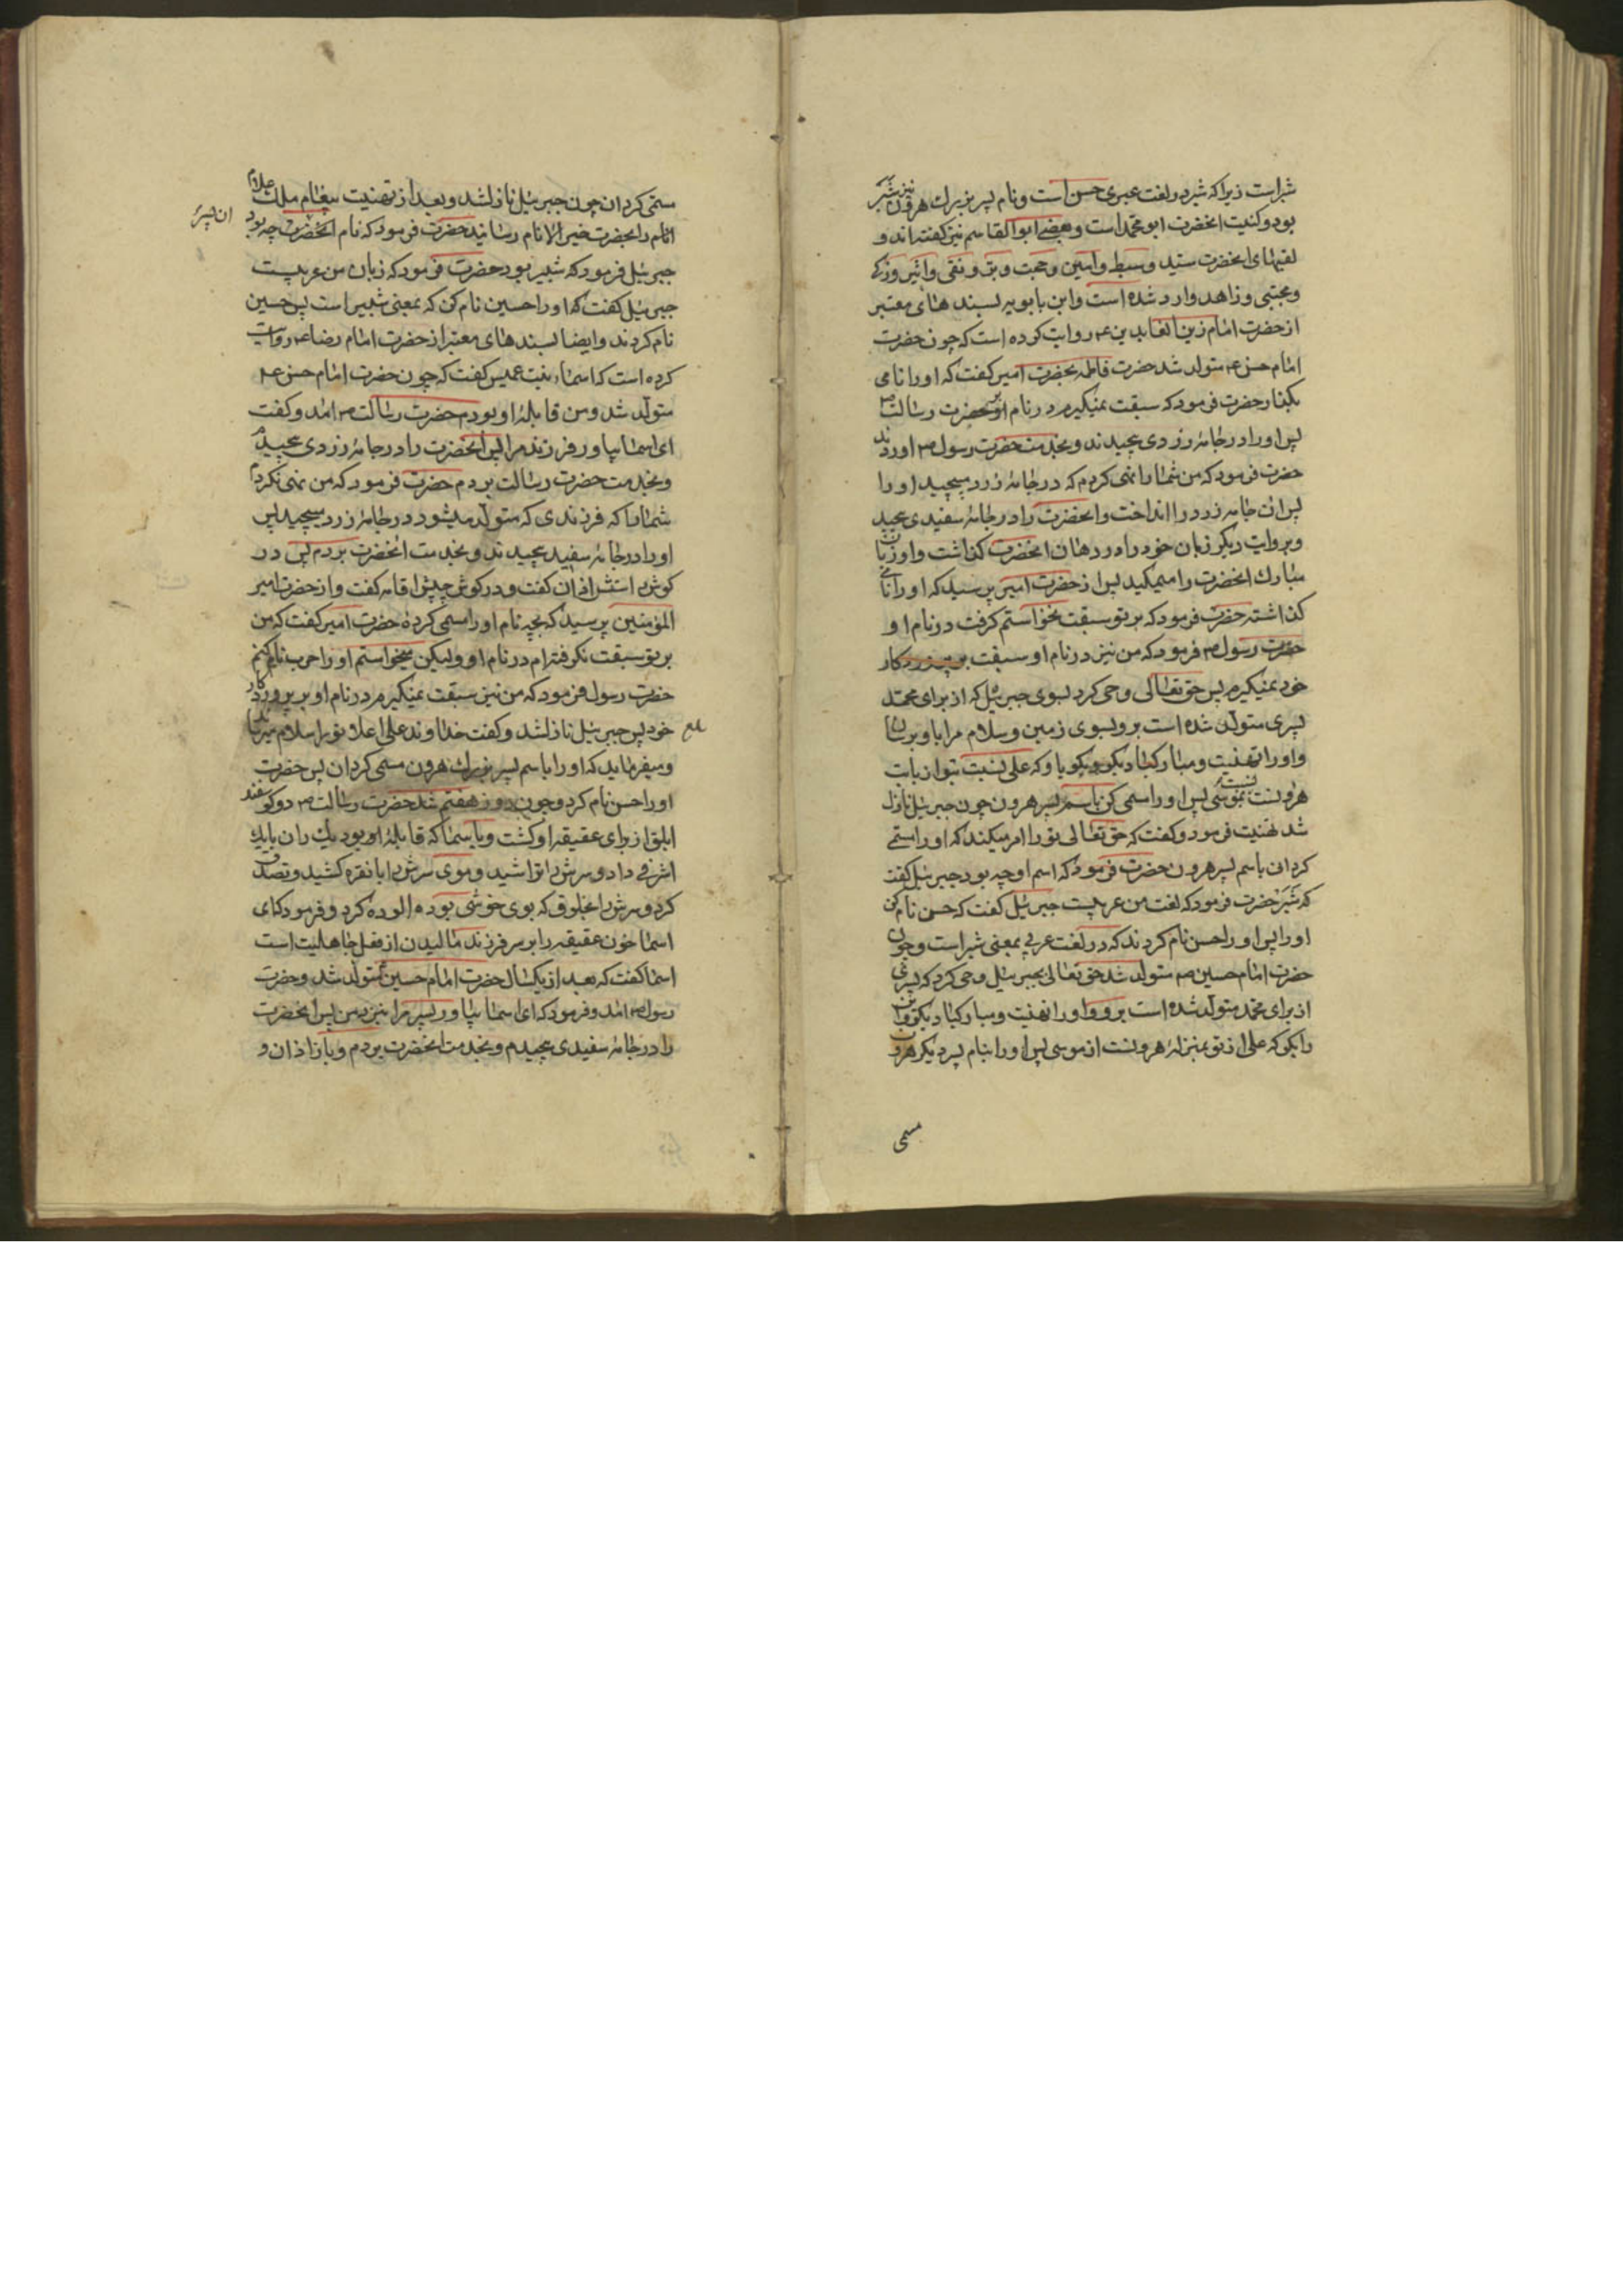 شبراست زیرا که شبر در لغت عبری حسن است و نام پسر بزرك هرون نیز شبر
بود و کنیت انحضرت ابو محمد است و بعضے ابو القاسم نیز کفته اند و
لقبهای انحضرت سید و سبط و امین و حجت و بر و نقی و اثیر و زکے
و مجتبی و زاهد وارد شده است و ابن بابویه بسند های معتبر
از حضرت امام زین العابدین ع روایت کرده است که چون حضرت
امام حسن ع متولد شد حضرت فاطمه بحضرت امیر کفت که او را نامی
بکذار حضرت فرمود که سبقت نمیکیرم در نام او بر حضرت رسالت ص
پس او را در جامۀ زردی پیچیدند و بخدمت حضرت رسول ص اوردند
حضرت فرمود که من شما را نهی کردم که در جامۀ زرد مپیچید او را
پس ان جامه زرد را انداخت و انحضرت را در جامۀ سفیدی پیچید
و بروایت دیکر زبان خود را در دهان انحضرت کذاشت و او زبان
مبارك انحضرت را میمکید پس از حضرت امیر پرسید که او را نامے
کذاشته حضرت فرمود که بر تو سبقت نخواستم کرفت در نام او
حضرت رسول ص فرمود که من نیز در نام او سبقت بر پروردکار
خود نمیکیرم پس حق تعالی وحی کرد بسوی جبرئیل که از برای محمد
پسری متولد شده است برو بسوی زمین و سلام مرا باو برسان
و او را تهنیت و مبارکباد بکو و بکو باو که علی نسبت بتو از بابت
هرونست نسبت بموسی پس او را مسمی کن باسم پسر هرون چون جبرئیل نازل
شد تهنیت فرمود و کفت که حق تعالی تو را امر میکند که او را مسمے
کردانی باسم پسر هرون حضرت فرمود که اسم او چه بود جبرئیل کفت
که شبر حضرت فرمود که لغت من عربیست جبرئیل کفت که حسن نام کن
او را پس او را حسن نام کردند که در لغت عربی بمعنی شبر است و چون
حضرت امام حسین ص متولد شد حق تعالی بجبرئیل وحی کرد که پسری
از برای محمد متولد شده است برو و او را تهنیت و مبارکباد بکو و ان
را بکو که علی از تو بمنزلۀ هرونست از موسی پس او را بنام پسر دیکر هرون
مسمی
مسمی کردان چون جبرئیل نازلشد و بعد از تهنیت پیغام ملك علام
انام را بحضرت خیر الانام رسانید حضرت فرمود که نام انحضرت چه بود
ان پسر
جبرئیل فرمود که شبیر بود حضرت فرمود که زبان من عربیست
جبرئیل کفت که او را حسین نام کن که بمعنی شبیر است پس حسین
نام کردند و ایضا بسند های معتبر از حضرت امام رضا ع روایت
کرده است که اسماء بنت عمیس کفت که چون حضرت امام حسن ع
متولد شد و من قابلۀ او بودم حضرت رسالت ص امد و کفت
ای اسما بیاور فرزند مرا پس انحضرت را در جامۀ زردی پیچیدم
و بخدمت حضرت رسالت بردم حضرت فرمود که من نهی نکردم
شما را که فرزندی که متولد میشود در جامۀ زرد مپیچید پس
او را در جامۀ سفید پیچیدند و بخدمت انحضرت بردم پس در
کوش راستش اذان کفت و در کوش چپش اقامه کفت و از حضرت امیر
المؤمنین پرسید که بچه نام او را مسمی کردۀ حضرت امیر کفت که من
بر تو سبقت نکرفته ام در نام او ولیکن میخواستم او را حرب نام کنم
حضرت رسول فرمود که من نیز سبقت نمیکیرم در نام او بر پروردکار
خود پس جبرئیل نازلشد و کفت خداوند علی اعلا تو را سلام میرساند
و میفرماید که او را باسم پسر بزرك هرون مسمی کردان پس حضرت
او را حسن نام کرد و چون روز هفتم شد حضرت رسالت ص دو کوسفند
ابلق از برای عقیقه او کشت و باسما که قابلۀ او بود یك ران با یك
اشرفی داد و سرش را تراشید و موی سرش را با نقره کشید و تصدق
کرد و سرش را بخلوق که بوی خوشی بوده الوده کرد و فرمود که ای
اسما خون عقیقه را بر سر فرزند مالیدن از فعل جاهلیت است
اسما کفت که بعد از یکسال حضرت امام حسین ع متولد شد و حضرت
رسول ص امد و فرمود که ای اسما بیاور پسر مرا بنزد من پس انحضرت
را در جامۀ سفیدی پیچیدم و بخدمت انحضرت بردم و باز اذان و